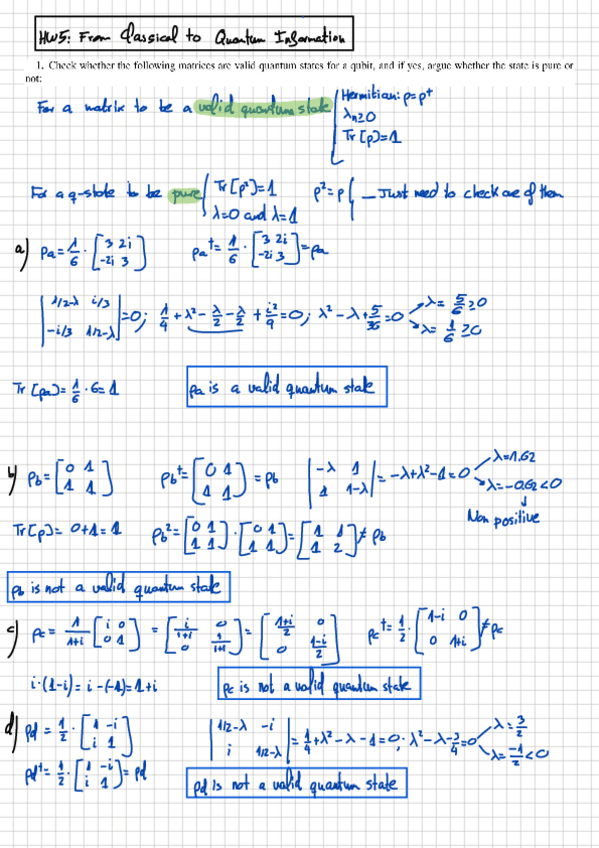 HW5: From Classical to Quantum Information
1. Check whether the following matrices are valid quantum states for a qubit, and if yes, argue whether the state is pure or
not:
For a matrix to be a valid quantum state { Hermitian: ρ=ρ†
λn≥0
Tr[ρ]=1
For a q-state to be pure { Tr[ρ²]=1 ρ²=ρ } — Just need to check one of them
λ=0 and λ=1
a) ρa = 1/6 · [3 2i; -2i 3] ρa† = 1/6 · [3 2i; -2i 3] = ρa
|1/2-λ i/3; -i/3 1/2-λ| = 0; 1/4 + λ² - λ/2 - λ/2 + i²/9 = 0; λ² - λ + 5/36 = 0 → λ = 5/6 ≥ 0
→ λ = 1/6 ≥ 0
Tr[ρa] = 1/6 · 6 = 1 ρa is a valid quantum state
b) ρb = [0 1; 1 1] ρb† = [0 1; 1 1] = ρb |-λ 1; 1 1-λ| = -λ+λ²-1=0 → λ=1,62
→ λ=-0,62<0
↓
Non positive
Tr[ρ] = 0+1 = 1 ρb² = [0 1; 1 1] · [0 1; 1 1] = [1 1; 1 2] ≠ ρb
ρb is not a valid quantum state
c) ρc = 1/1+i [i 0; 0 1] = [i/1+i 0; 0 1/1+i] = [1+i/2 0; 0 1-i/2] ρc† = 1/2 · [1-i 0; 0 1+i] ≠ ρc
i·(1-i) = i-(-1) = 1+i ρc is not a valid quantum state
d) ρd = 1/2 · [1 -i; i 1] |1/2-λ -i; i 1/2-λ| = 1/4 + λ² - λ - 1 = 0; λ² - λ - 3/4 = 0 → λ = 3/2
→ λ = -1/2 < 0
ρd† = 1/2 · [1 -i; i 1] = ρd
ρd is not a valid quantum state